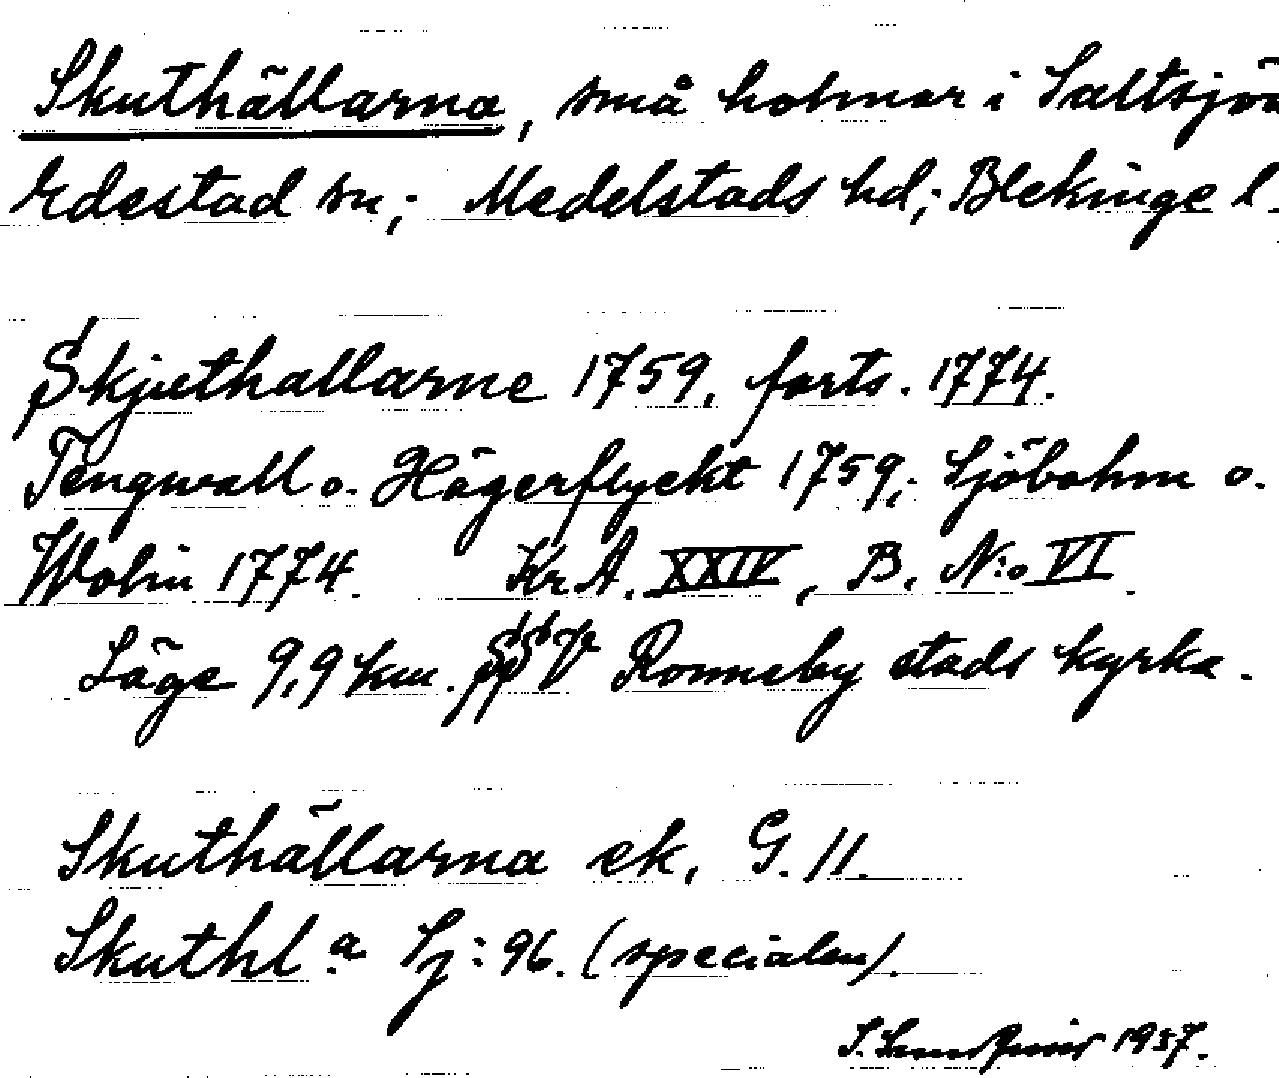 Skuthällarna, små holmar i Saltsjön
Edestad sn,; Medelstads hd,; Blekinge l.
Skjuthallarne 1759, forts. 1774.
Tengwall o. Hägerflyckt 1759,; Sjöbohm o.
Wolin 1774. Kr A. XXIV, B, N:o VI.
Läge 9,9 km. SSV Ronneby stads kyrka.
Skuthällarna ek, G. 11.
Skuthl.a Sj:96. (specialen).
1957.